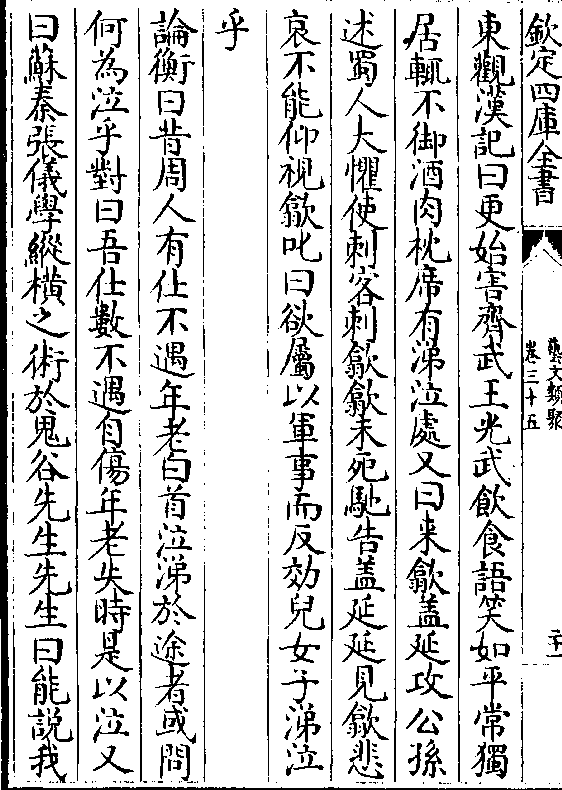 欽定四庫全書
藝文類聚
卷三十五
二十一
東觀漢記曰更始害齊武王光武飲食語笑如平常獨
居輒不御酒肉枕席有涕泣處又曰来歙蓋延攻公孫
述蜀人大懼使刺客刺歙歙未死馳告盖延延見歙悲
哀不能仰視歙叱曰欲屬以軍事而反効兒女子涕泣
乎
論衡曰昔周人有仕不遇年老白首泣涕於途者或問
何為泣乎對曰吾仕數不遇自傷年老失時是以泣又
曰蘇秦張儀學縱横之術於鬼谷先生先生曰能説我